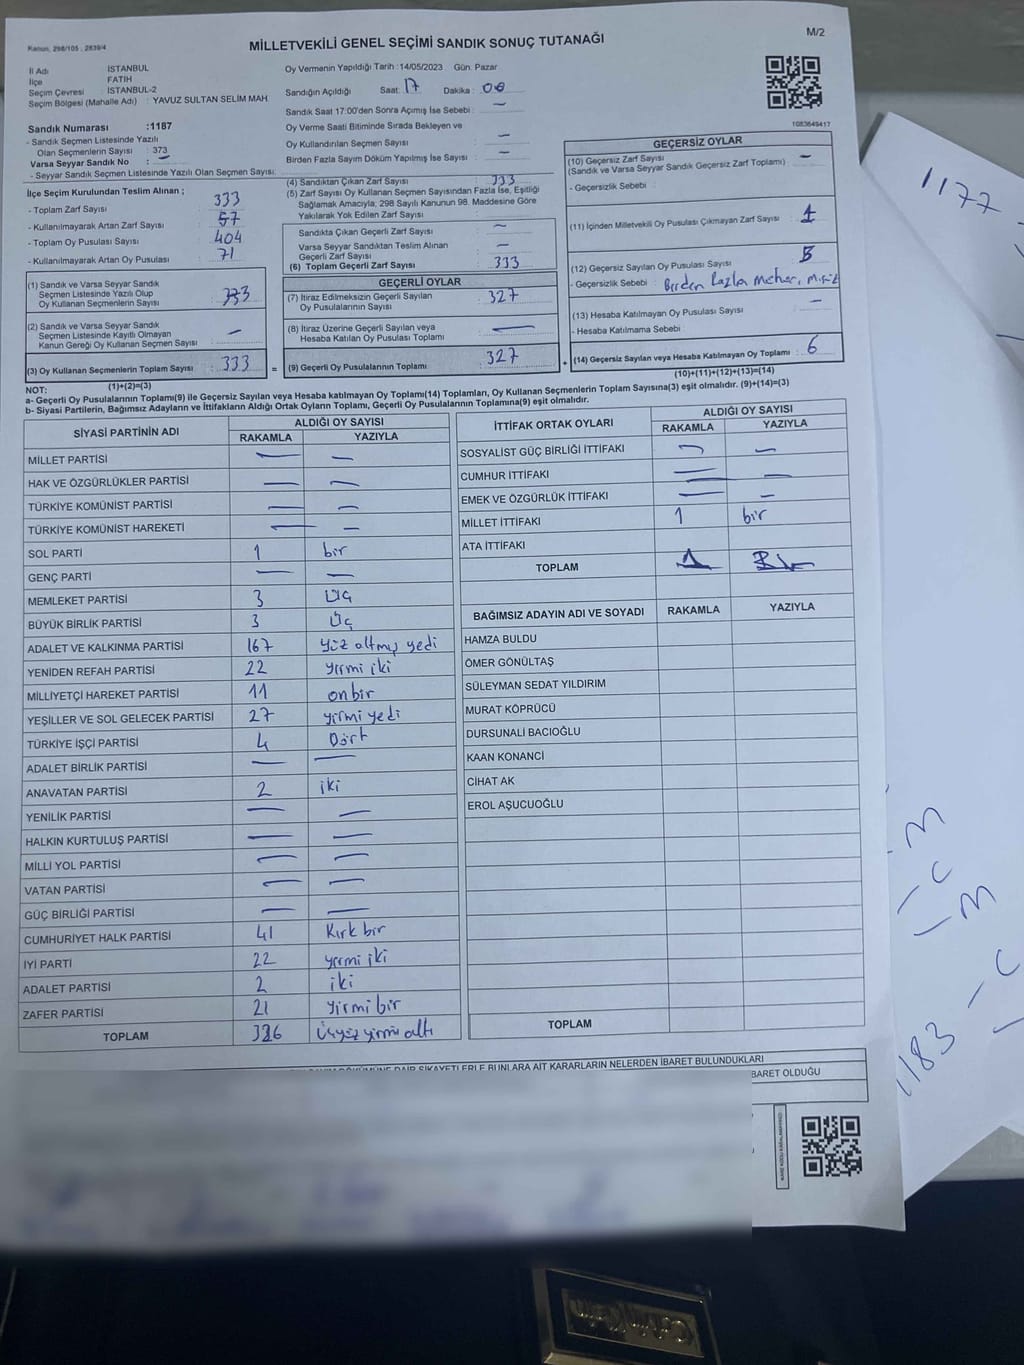 Kanun, 298/105 , 2839/4
M/2
MİLLETVEKİLİ GENEL SEÇİMİ SANDIK SONUÇ TUTANAĞI
İl Adı : İSTANBUL
İlçe : FATİH
Seçim Çevresi : İSTANBUL-2
Seçim Bölgesi (Mahalle Adı) : YAVUZ SULTAN SELİM MAH
Sandık Numarası :1187
- Sandık Seçmen Listesinde Yazılı
Olan Seçmenlerin Sayısı : 373
Varsa Seyyar Sandık No : —
- Seyyar Sandık Seçmen Listesinde Yazılı Olan Seçmen Sayısı:
Oy Vermenin Yapıldığı Tarih :14/05/2023 Gün: Pazar
Sandığın Açıldığı Saat: 17 Dakika : 00
Sandık Saat 17:00'den Sonra Açımış İse Sebebi : —
Oy Verme Saati Bitiminde Sırada Bekleyen ve
Oy Kullandırılan Seçmen Sayısı : —
Birden Fazla Sayım Döküm Yapılmış İse Sayısı : —
1083649417
İlçe Seçim Kurulundan Teslim Alınan ;
- Toplam Zarf Sayısı : 333
- Kullanılmayarak Artan Zarf Sayısı : 57
- Toplam Oy Pusulası Sayısı : 404
- Kullanılmayarak Artan Oy Pusulası : 71
(1) Sandık ve Varsa Seyyar Sandık
Seçmen Listesinde Yazılı Olup
Oy Kullanan Seçmenlerin Sayısı : 333
(2) Sandık ve Varsa Seyyar Sandık
Seçmen Listesinde Kayıtlı Olmayan
Kanun Gereği Oy Kullanan Seçmen Sayısı : —
(3) Oy Kullanan Seçmenlerin Toplam Sayısı : 333 =
(1)+(2)=(3)
(4) Sandıktan Çıkan Zarf Sayısı : 333
(5) Zarf Sayısı Oy Kullanan Seçmen Sayısından Fazla İse, Eşitliği
Sağlamak Amacıyla, 298 Sayılı Kanunun 98. Maddesine Göre
Yakılarak Yok Edilen Zarf Sayısı :
Sandıkta Çıkan Geçerli Zarf Sayısı : —
Varsa Seyyar Sandıktan Teslim Alınan
Geçerli Zarf Sayısı : —
(6) Toplam Geçerli Zarf Sayısı : 333
GEÇERLİ OYLAR
(7) İtiraz Edilmeksizin Geçerli Sayılan
Oy Pusulalarının Sayısı : 327
(8) İtiraz Üzerine Geçerli Sayılan veya
Hesaba Katılan Oy Pusulası Toplamı : —
(9) Geçerli Oy Pusulalarının Toplamı : 327 +
GEÇERSİZ OYLAR
(10) Geçersiz Zarf Sayısı : —
(Sandık ve Varsa Seyyar Sandık Geçersiz Zarf Toplamı)
- Geçersizlik Sebebi :
(11) İçinden Milletvekili Oy Pusulası Çıkmayan Zarf Sayısı : 1
(12) Geçersiz Sayılan Oy Pusulası Sayısı : 5
- Geçersizlik Sebebi : Birden fazla mühür,
(13) Hesaba Katılmayan Oy Pusulası Sayısı : —
- Hesaba Katılmama Sebebi :
(14) Geçersiz Sayılan veya Hesaba Katılmayan Oy Toplamı : 6
(10)+(11)+(12)+(13)=(14)
NOT:
a- Geçerli Oy Pusulalarının Toplamı(9) ile Geçersiz Sayılan veya Hesaba katılmayan Oy Toplam(14) Toplamları, Oy Kullanan Seçmenlerin Toplam Sayısına(3) eşit olmalıdır. (9)+(14)=(3)
b- Siyasi Partilerin, Bağımsız Adayların ve İttifakların Aldığı Ortak Oyların Toplamı, Geçerli Oy Pusulalarının Toplamına(9) eşit olmalıdır.
SİYASİ PARTİNİN ADI ALDIĞI OY SAYISI
RAKAMLA YAZIYLA
MİLLET PARTİSİ — —
HAK VE ÖZGÜRLÜKLER PARTİSİ — —
TÜRKİYE KOMÜNİST PARTİSİ — —
TÜRKİYE KOMÜNİST HAREKETİ — —
SOL PARTİ 1 bir
GENÇ PARTİ — —
MEMLEKET PARTİSİ 3 üç
BÜYÜK BİRLİK PARTİSİ 3 üç
ADALET VE KALKINMA PARTİSİ 167 yüz altmış yedi
YENİDEN REFAH PARTİSİ 22 yirmi iki
MİLLİYETÇİ HAREKET PARTİSİ 11 onbir
YEŞİLLER VE SOL GELECEK PARTİSİ 27 yirmi yedi
TÜRKİYE İŞÇİ PARTİSİ 4 Dört
ADALET BİRLİK PARTİSİ — —
ANAVATAN PARTİSİ 2 iki
YENİLİK PARTİSİ — —
HALKIN KURTULUŞ PARTİSİ — —
MİLLİ YOL PARTİSİ — —
VATAN PARTİSİ — —
GÜÇ BİRLİĞİ PARTİSİ — —
CUMHURİYET HALK PARTİSİ 41 Kırk bir
İYİ PARTİ 22 yirmi iki
ADALET PARTİSİ 2 iki
ZAFER PARTİSİ 21 Yirmi bir
TOPLAM 326 Üçyüz yirmi altı
İTTİFAK ORTAK OYLARI ALDIĞI OY SAYISI
RAKAMLA YAZIYLA
SOSYALİST GÜÇ BİRLİĞİ İTTİFAKI — —
CUMHUR İTTİFAKI — —
EMEK VE ÖZGÜRLÜK İTTİFAKI — —
MİLLET İTTİFAKI 1 bir
ATA İTTİFAKI
TOPLAM 1 Bir
BAĞIMSIZ ADAYIN ADI VE SOYADI RAKAMLA YAZIYLA
HAMZA BULDU
ÖMER GÖNÜLTAŞ
SÜLEYMAN SEDAT YILDIRIM
MURAT KÖPRÜCÜ
DURSUNALİ BACIOĞLU
KAAN KONANCİ
CİHAT AK
EROL AŞUCUOĞLU
TOPLAM
DAİR ŞİKAYETLERLE BUNLARA AİT KARARLARIN NELERDEN İBARET BULUNDUKLARI
BARET OLDUĞU
1177 -
- M
- C
- M
- C
1183
Calvin Klein